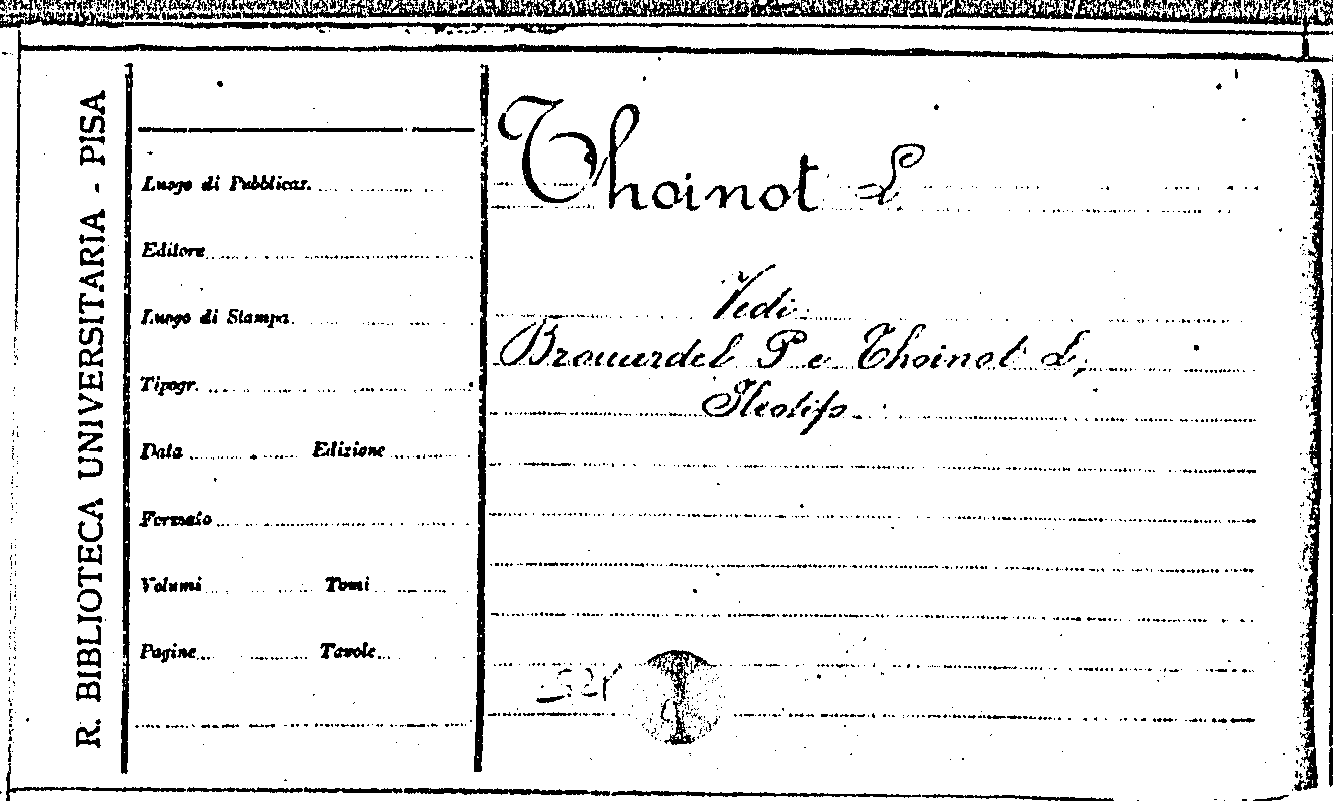 R. BIBLIOTECA UNIVERSITARIA - PISA
Luogo di Pubblicaz.
Editore
Luogo di Stampa
Tipogr.
Data Edizione
Formato
Volumi Tomi
Pagine Tavole
Thoinot L
Vedi:
Brouardel P e Thoinot L,